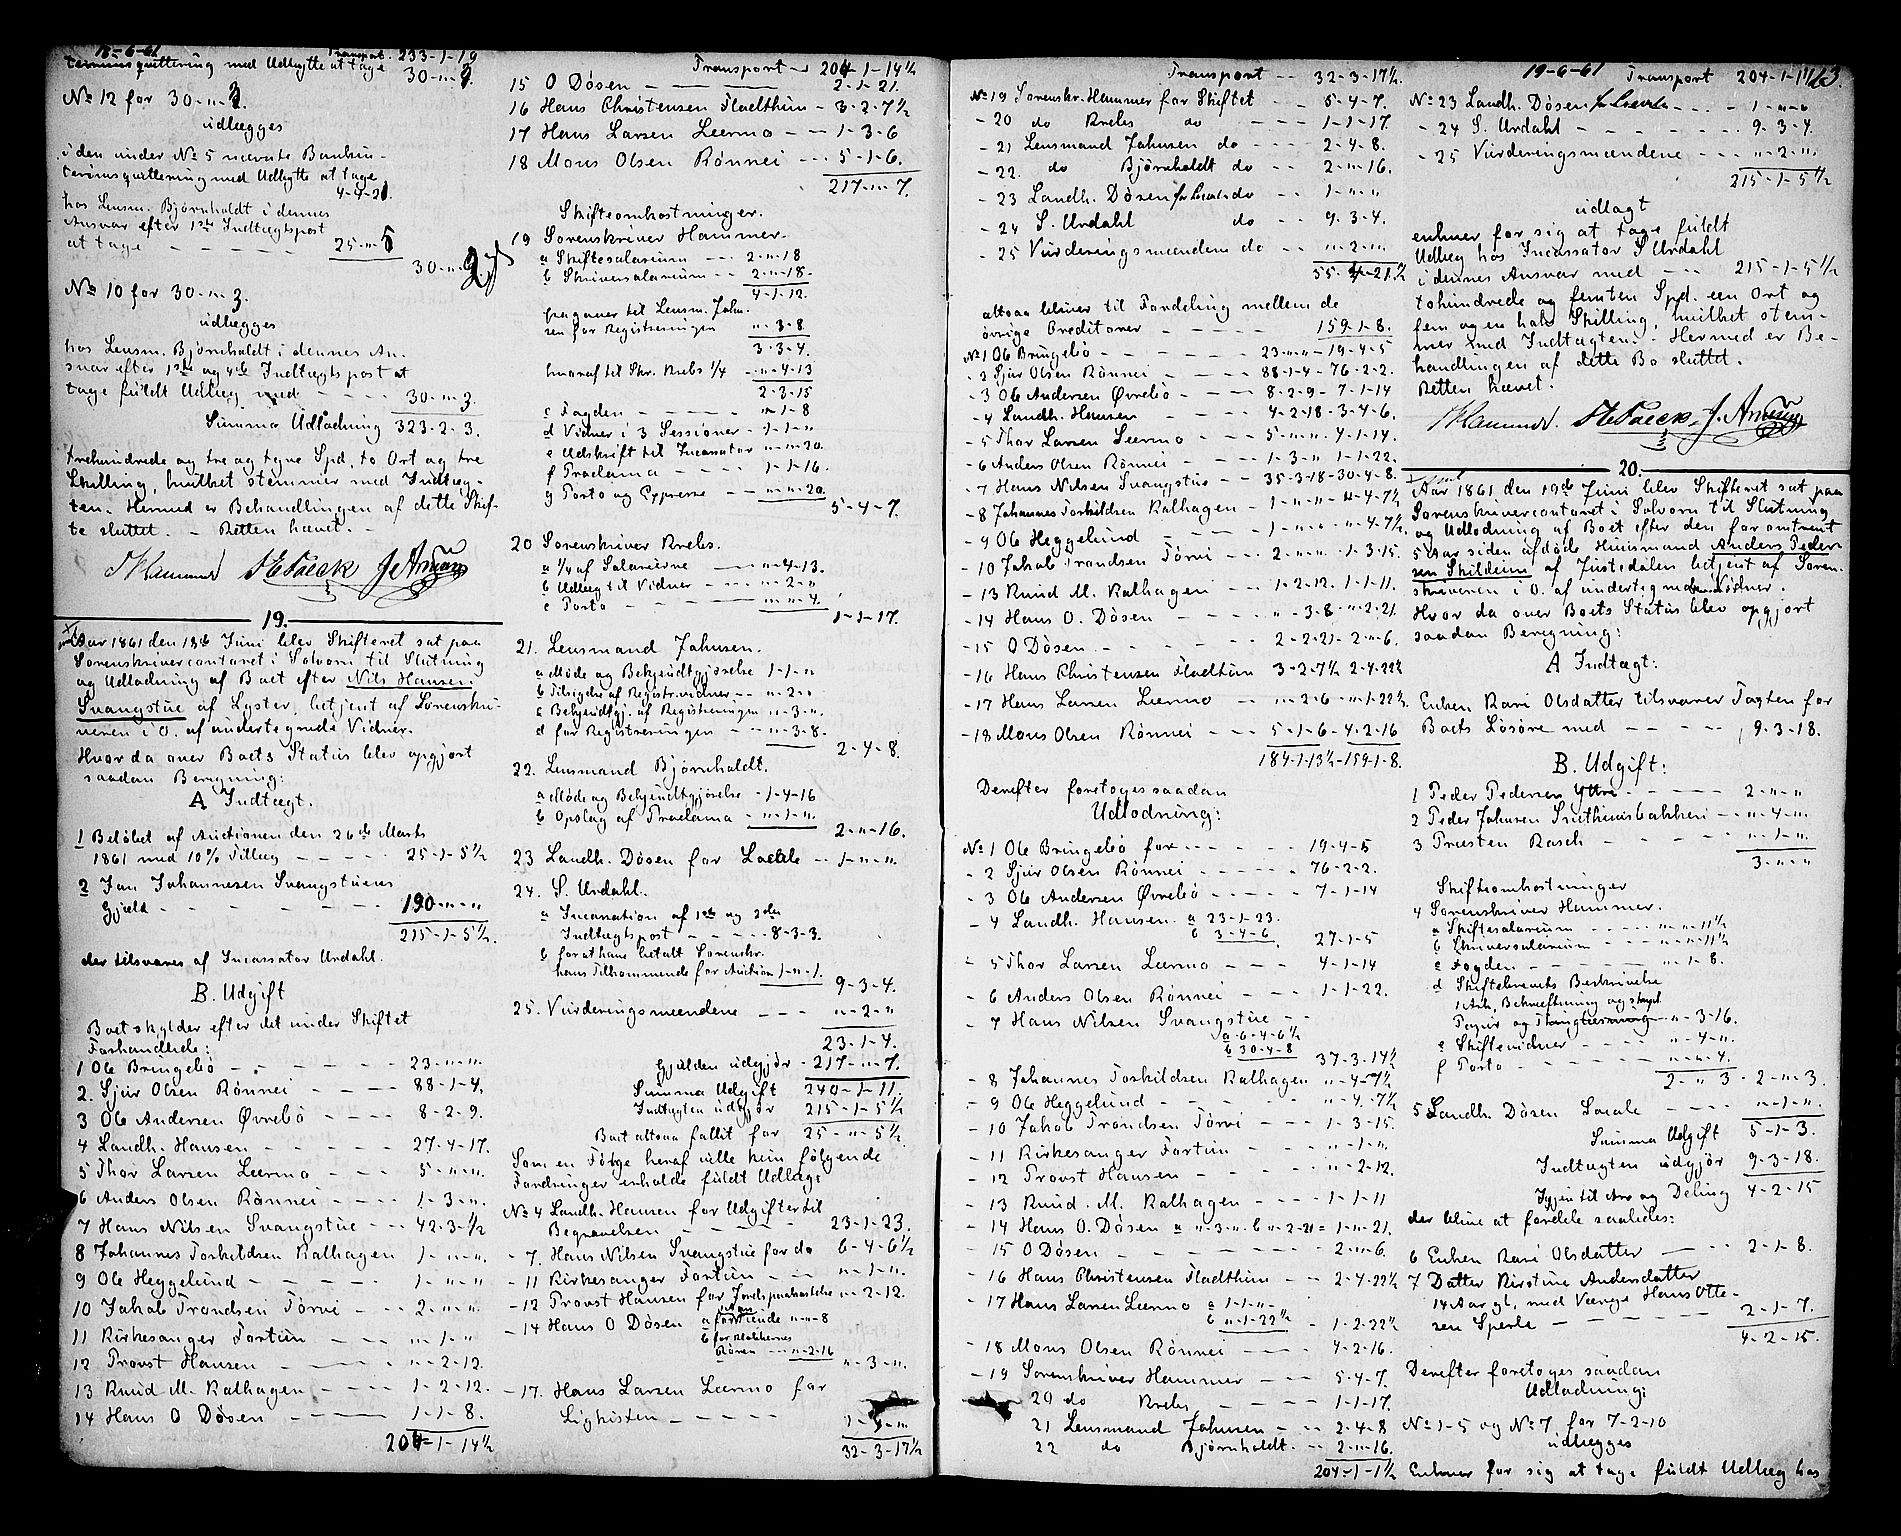 18-6-61
Transport. 233-1-19
terminsquittering med Udbytte at tage 30-"-3.
No 12 for 30-"-3.
udlægges
i den under No 5 nævnte Bankin-
terimsquittering med Udbytte at tage
4-4-21.
hos Lensm. Bjørnholdt i dennes
Ansvar efter 1ste Indtægtspost
at tage - - - 25-"-5
30-"-2
No 10 for 30-"-3.
udlægges
hos Lensm. Bjørnholdt i dennes An-
svar efter 1ste og 4de Indtægtspost at
tage fuldt Udlæg med - - - 30-"-3.
Summa Udlodning 323-2-3.
trehundrede og tre og tyve Spd. to Ort og tre
Skilling, hvilket stemmer med Indtæg-
ten. Hermed er Behandlingen af dette Skif-
te sluttet. - Retten hævet. -
19.
Aar 1861 den 18de Juni blev Skifteret sat paa
Sorenskrivercontoret i Solvorn til Slutning
og Udlodning af Boet efter Nils Hansen
Svangstue af Lyster, betjent af Sorenskri-
veren i O. af undertegnede Vidner.
Hvor da over Boets Status blev opgjort
saadan Beregning:
A Indtægt.
1 Beløbet af Auctionen den 26de Marts
1861 med 10% Tillæg - - - 25-1-5½
2 Jan Johannesen Svangstuens
Gjæld - - - 190-"-"
215-1-5½.
der tilsvares af Incassator Urdahl.
B. Udgift
Boet skylder efter det under Skiftet
Forhandlede:
1 Ole Bringebø - - - 23-"-".
2. Sjur Olsen Rønnei - - - 88-1-4.
3 Ole Andersen Øvrebø - - - 8-2-9.
4 Landh. Hansen - - - 27-4-17.
5 Thor Larsen Leermo - - - 5-"-".
6 Anders Olsen Rønnei - - - 1-3-".
7 Hans Nilsen Svangstue - - 42-3-½
8 Johannes Torkildsen Kalhagen 1-"-".
9 Ole Heggelund - - - 1-"-"
10 Jakob Trondsen Tørvi - - - 2-"-".
11 Kirkesanger Fortun - - - "-1-"
12 Provst Hansen - - - "-2-12.
13 Knud M. Kalhagen - - - 1-2-12.
14 Hans O Døsen - - - 1-1-8.
204-1-14½
Transport - 204-1-14½
15 O Døsen - - - 2-1-21.
16 Hans Christensen Fladthun - 3-2-7½
17 Hans Larsen Leermo - - 1-3-6
18 Mons Olsen Rønnei - - - 5-1-6.
217-"-7.
Skifteomkostninger.
19 Sorenskriver Hammer.
a Skiftesalarium - - - 2-"-18
b Skriversalarium - - 2-"-18.
4-1-12.
fragaaer til Lensm. Jahn-
sen for Registreringen "-3-8.
3-3-4.
hvoraf til Skr. Krebs ¼ - "-4-13
2-3-15
c Fogden - - - "-1-8
d Vidner i 3 Sessioner - 1-1-"
e Udskrift til Incassator "-"-20.
f Proclama - - - 1-1-16.
g Porto og Expresse - - "-"-20.
5-4-7.
20 Sorenskriver Krebs.
a ¼ af Salarierne - - "-4-13.
b Udlæg til Vidner - - - "-2-"
c Porto - - - "-"-4.
1-1-17.
21. Lensmand Jahnsen.
a Møde og Bekjendtgjørelse 1-1-"
b Tilsigelse af Registr.vidner - - "-2-"
c Bekjendtgj. af Registreringen "-3-".
d for Registreringen - - - "-3-8-
2-4-8.
22. Lensmand Bjørnholdt.
a Møde og Bekjendtgjørelse - 1-4-16
b Opslag af Proclama - "-1-".
2-"-16.
23 Landh. Døsen for Locale - - 1-"-"
24. S. Urdahl.
a Incassation af 1ste og 2den
Indtægtspost - - - 8-3-3.
b for at have betalt Sorenskr-
hans Tilkommende for Auction 1-"-1.
9-3-4.
25. Vurderingsmændene - - - "-2-"
23-1-4.
Gjælden udgjør - 217-"-7.
Summa Udgift 240-1-11.
Indtægten udgjør 215-1-5½
Boet altsaa fallit for 25-"-5½.
Som en Følge heraf ville kun følgende
Fordringer erholde fuldt Udlæg:
No 4 Landh. Hansen for Udgifter til
Begravelsen - - - 23-1-23.
- 7. Hans Nilsen Svangstue for do 6-4-6½
- 11 Kirkesanger Fortun - - - "-1-".
- 12 Provst Hansen for Jordspaakastelse "-2-12.
- 14 Hans O Døsen a "-"-8
b for Klokkernes
Røren - - - "-2-16
"-3-".
- 17. Hans Larsen Leermo for
Ligkisten - - - 1-1-"
32-3-17½
Transport - - 32-3-17½.
No 19 Sorenskr. Hammer for Skiftet - - 5-4-7.
- 20 do Krebs do - - - 1-1-17.
- 21 Lensmand Jahnsen do - - - 2-4-8.
- 22. do Bjørnholdt do - - - 2-"-16.
- 23 Landh. Døsen for Locale do - - 1-"-"
- 24 S. Urdahl do - - 9-3-4.
- 25 Vurderingsmændene do - - "-2-".
55-4-21½
altsaa bliver til Fordeling mellem de
øvrige Creditorer - - - 159-1-8.
No 1 Ole Bringebø - - - 23-"-" - 19-4-5
- 2 Sjur Olsen Rønnei - - - 88-1-4 - 76-2-2.
- 3 Ole Andersen Øvrebø - - - 8-2-9 - 7-1-14
- 4 Landh. Hansen - - - 4-2-18 - 3-4-6.
- 5 Thor Larsen Leermo - - - 5-"-" - 4-1-14.
- 6 Anders Olsen Rønnei - - - 1-3-" 1-1-22.
- 7 Hans Nilsen Svangstue - - 35-3-18 - 30-4-8.
- 8 Johannes Torkildsen Kalhagen - 1-"-" - "-4-7½
- 9 Ole Heggelund - - - 1-"-" - "-4-7½.
- 10 Jakob Trondsen Tørvi - - - 2-"-" - 1-3-15.
- 13 Knud M. Kalhagen - - 1-2-12. 1-1-11.
- 14 Hans O. Døsen - - - "-3-8 - "-2-21
- 15 O Døsen - - - 2-2-21 - 2-"-6.
- 16 Hans Christensen Fladthun 3-2-7½ 2-4-22½
- 17 Hans Larsen Leermo - - "-2-6 - "-1-22½.
- 18 Mons Olsen Rønnei - - - 5-1-6 - 4-2-16
184-1-13½ - 159-1-8.
Derefter foretoges saadan
Udlodning:
No 1 Ole Bringebø for - - - 19-4-5
- 2 Sjur Olsen Rønnei - - - 76-2-2.
- 3 Ole Andersen Øvrebø - - - 7-1-14
- 4 Landh. Hansen. a 23-1-23.
b 3-4-6. 27-1-5
- 5 Thor Larsen Leermo - - - 4-1-14
- 6 Anders Olsen Rønnei - - - 1-1-22.
- 7 Hans Nilsen Svangstue - -
a 6-4-6½
b 30-4-8 37-3-14½
- 8 Johannes Torkildsen Kalhagen "-4-7½
- 9 Ole Heggelund - - - "-4-7½
- 10 Jakob Trondsen Tørvi - - - 1-3-15.
- 11 Kirkesanger Fortun - - - "-1-"
- 12 Provst Hansen - - - "-2-12.
- 13 Knud. M. Kalhagen - - - 1-1-11
- 14 Hans O. Døsen a "-3-" b "-2-21 = 1-"-21.
- 15 O Døsen - - - 2-"-6.
- 16 Hans Christensen Fladthun - - 2-4-22½
- 17 Hans Larsen Leermo a 1-1-"-
b "-1-22½ - 1-2-22½
- 18 Mons Olsen Rønnei - - - 4-2-16.
- 19 Sorenskriver Hammer - - - 5-4-7.
20 do Krebs - - - 1-1-17.
21 Lensmand Jahnsen - - 2-4-8
22 do Bjørnholdt. - - 2-"-16.
204-1-1½
19-6-61
Transport 204-1-1½
123.
No 23 Landh. Døsen for Locale - - - 1-"-"
- 24 S. Urdahl - - - 9-3-4.
- 25 Vurderingsmændene - - - "-2-".
215-1-5½
udlagt
enhver for sig at tage fuldt
Udlæg hos Incassator S Urdahl
i dennes Ansvar med - - - 215-1-5½
tohundrede og femten Spd. een Ort og
fem og en halv Skilling, hvilket stem-
mer med Indtægten. - Hermed er Be-
handlingen af dette Bo sluttet.
Retten hævet.
20.
Aar 1861 den 19de Juni blev Skifteret sat paa
Sorenskrivercontoret i Solvorn til Slutning
og Udlodning af Boet efter den for omtrent
5 Aar siden afdøde Huusmand Anders Peder-
sen Skildeim af Justedalen betjent af Soren-
skriveren i O. af undertegnede Vidner.
Hvor da over Boets Status blev opgjort
saadan Beregning:
A Indtægt:
Enken Kari Olsdatter tilsvarer Taxten for
Boets Løsøre med - - - 9-3-18.
B. Udgift:
1 Peder Pedersen Yttri - - - 2-"-"
2 Peder Jahnsen Snethunsbakken - - "-4-".
3 Præsten Rasch - - - "-1-".
3-"-"
Skifteomkostninger
4 Sorenskriver Hammer.
a Skiftesalarium - - - "-"-11½
b Skriversalarium - - - "-"-11½
c Fogden - - - "-1-8.
d Skiftebrevets Beskrivelse
1 Ark, Bekræftning og stempl
Papir og Thinglæsning - "-3-16.
e Skiftevidner - - - "-4-".
f Porto - - - "-"-4.
2-"-3 - 2-"-3.
5 Landh. Døsen Locale - - - "-1-".
Summa Udgift 5-1-3.
Indtægten udgjør 9-3-18.
Igjen til Arv og Deling 4-2-15
der blive at fordele saaledes:
6 Enken Kari Olsdatter - - - 2-1-8.
7 Datter Kirstine Andersdatter
14 Aar gl. med Værge Hans Otte-
sen Sperle - - - 2-1-7.
4-2-15.
Derefter foretoges saadan
Udlodning:
No 1-5 og No 7 for 7-2-10
udlægges
Enhver for sig at tage fuldt Udlæg hos